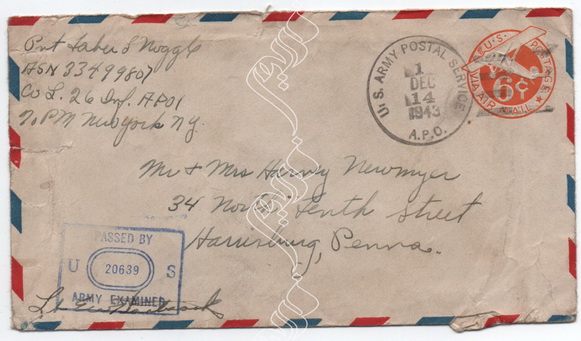 Pvt Laber L Noggle
ASN 33499807
Co L. 26 Inf. APO 1
℅ PM New York N.Y.
U.S. ARMY POSTAL SERVICE
1
DEC
14
1943
A.P.O.
U.S. POSTAGE
6¢
VIA AIR MAIL
Mr & Mrs Harvey Newmyer
34 North Tenth Street
Harrisburg, Penna.
PASSED BY
U 20639 S
ARMY EXAMINER